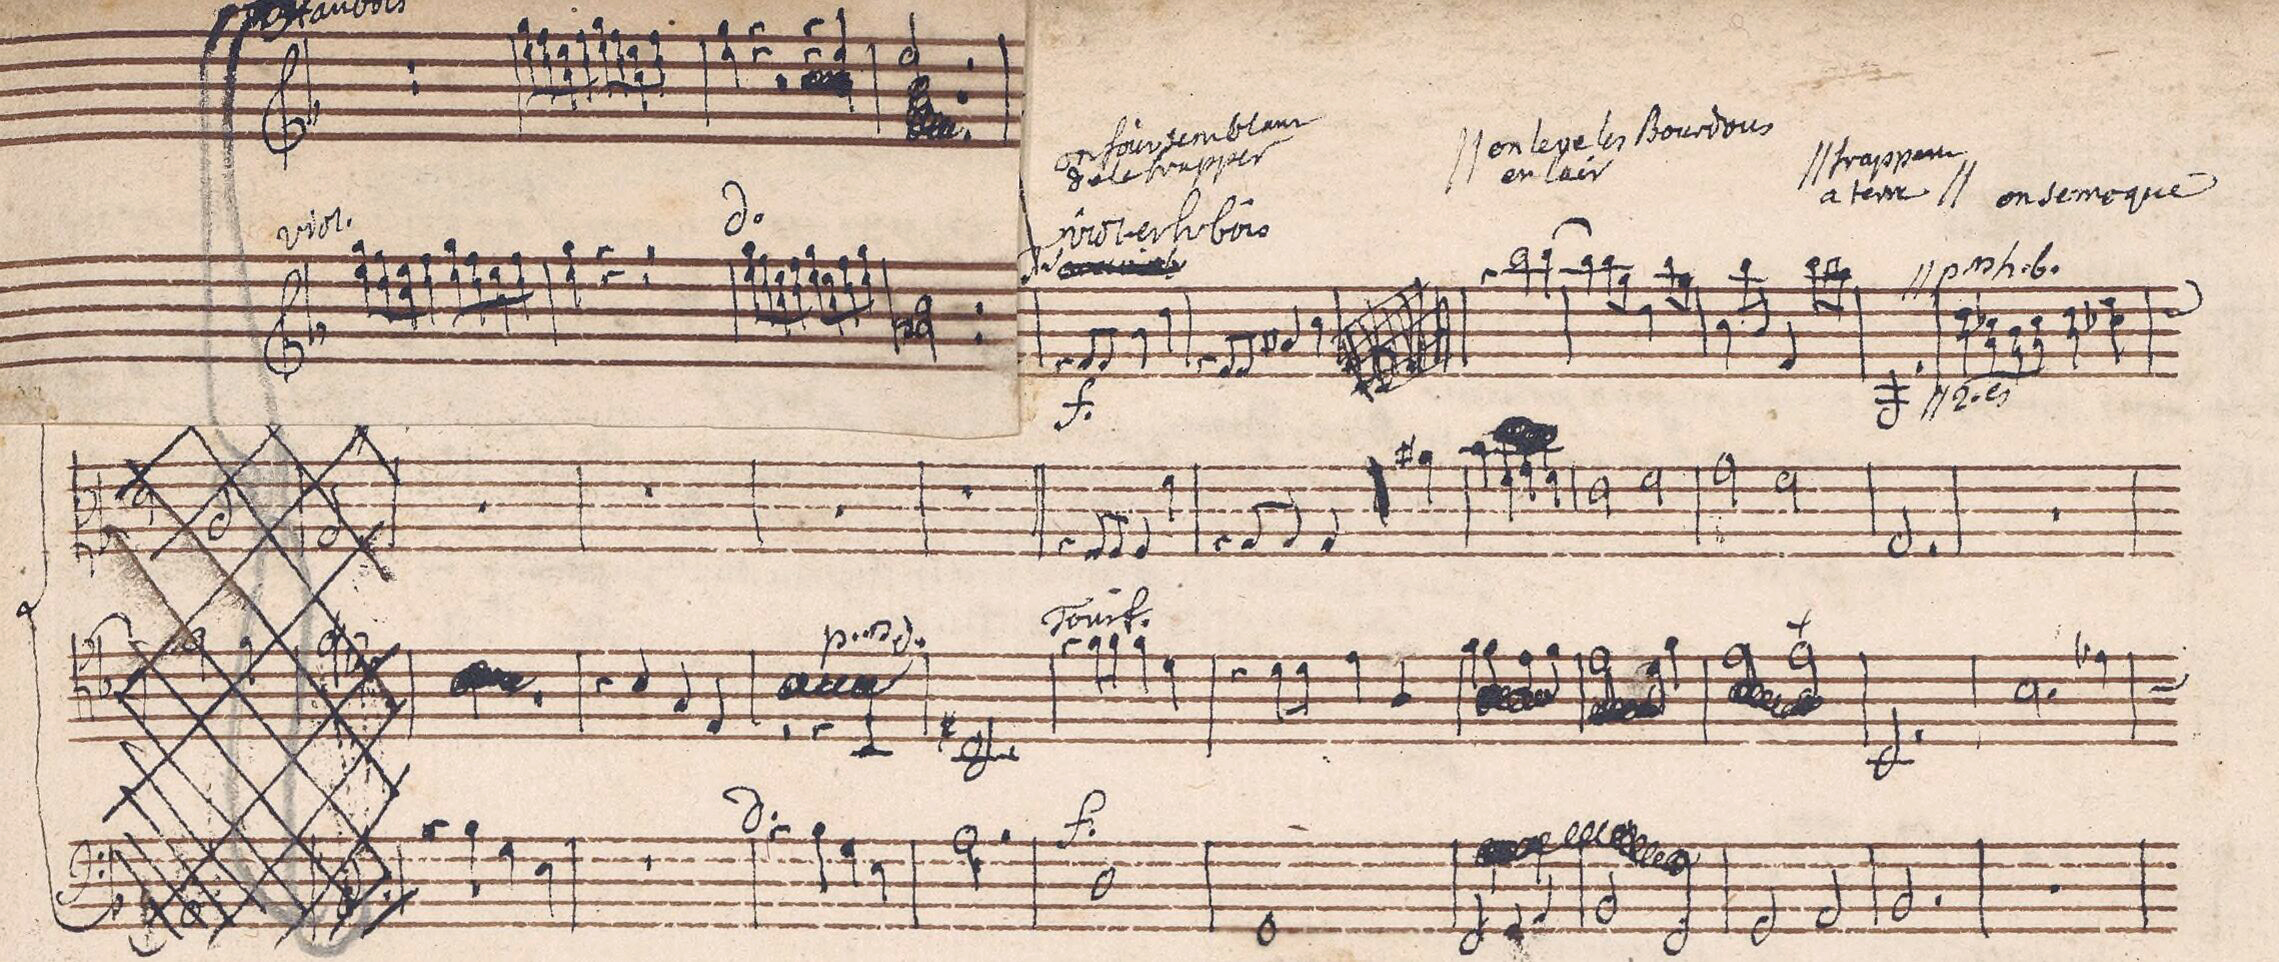 hautbois
viol.
d.
on fait semblant
de le frapper
// on leve les Bourdons
en lair
// frappent
a terre //
on se moque
viol. et h.bois
f.
// p.rs h.b.
// 2.es
Tout.
d.
f.